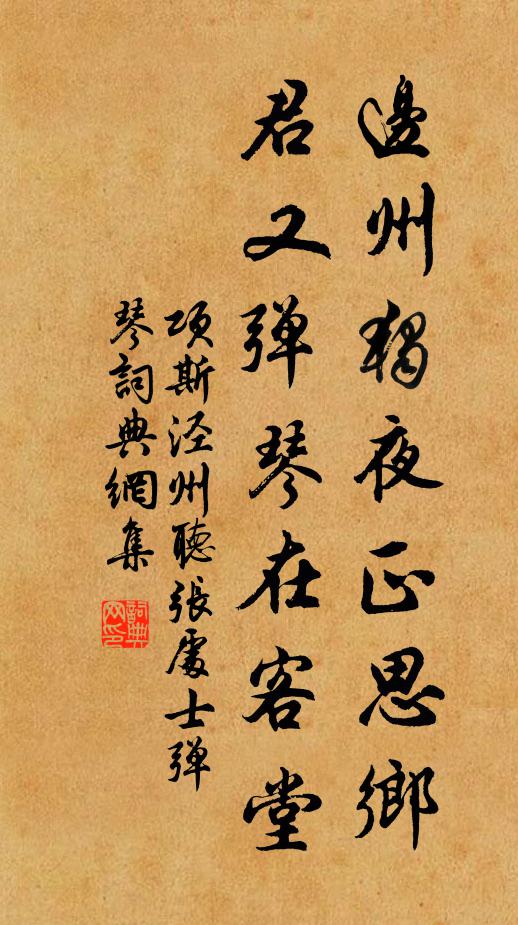 邊州獨夜正思鄉
君又弹琴在客堂
項斯涇州聽張處士弹
琴詞典網集
詞典
网印